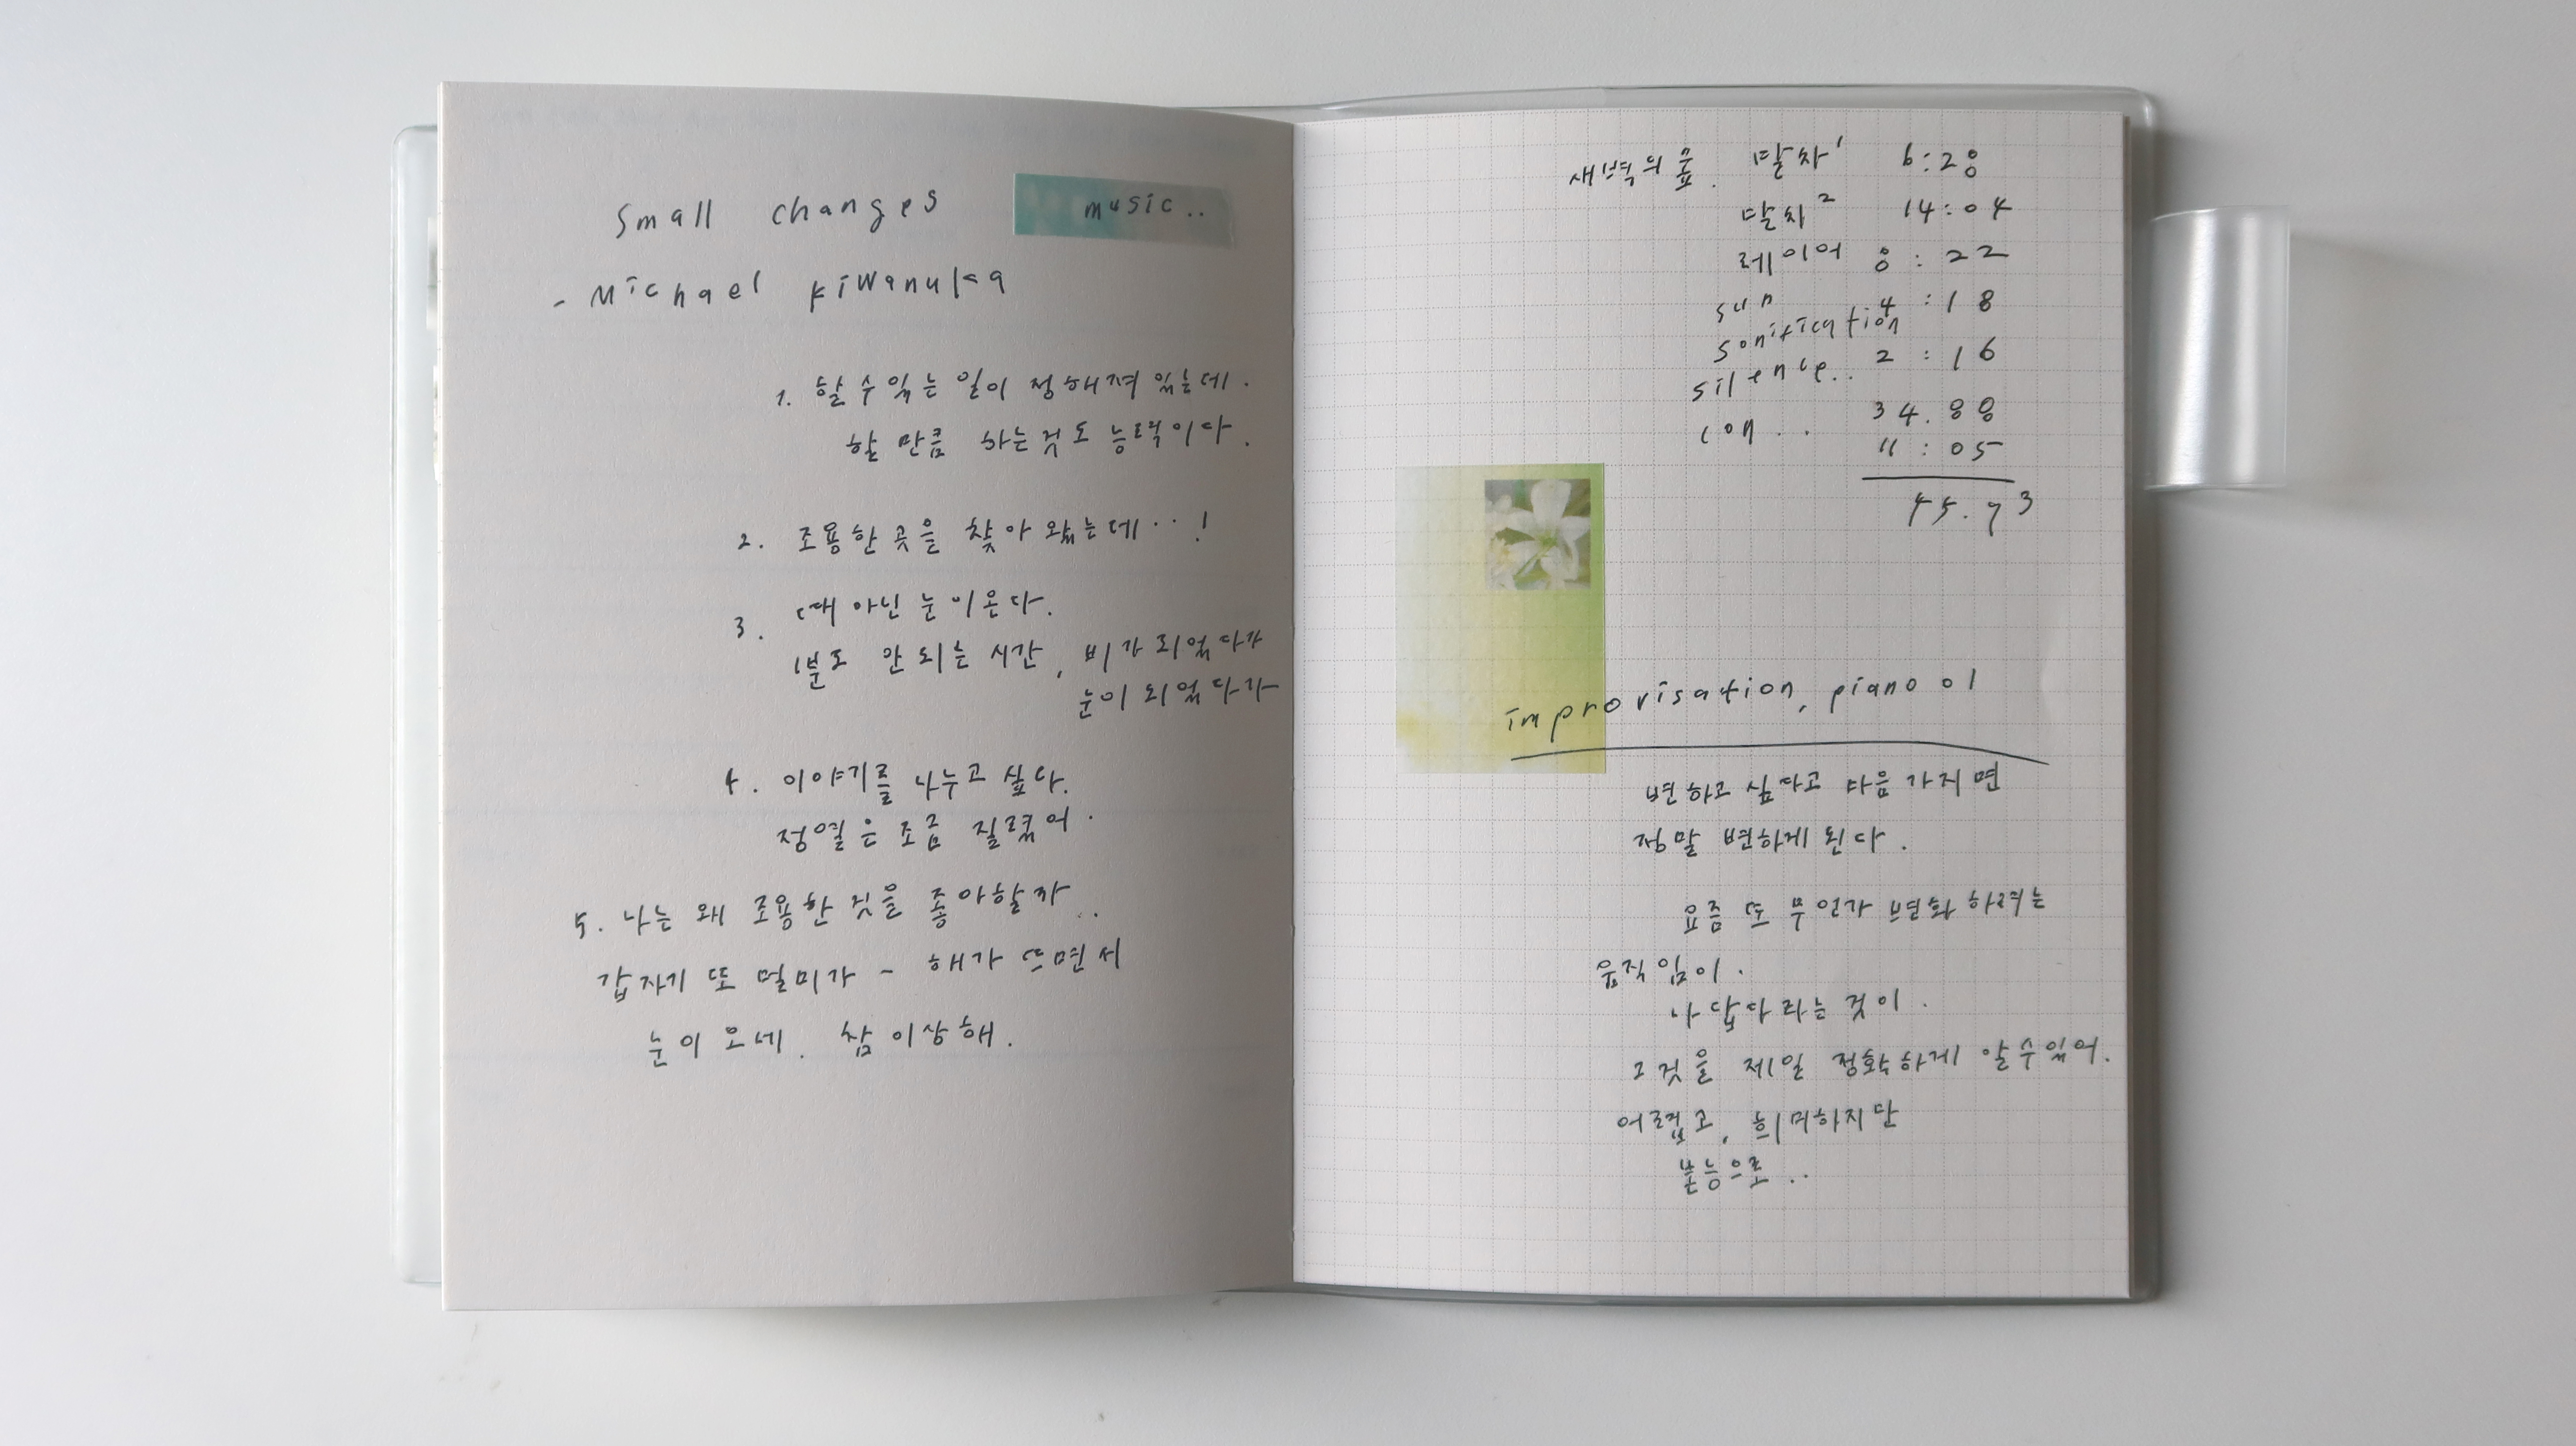 Small changes
music..
- Michael kiwanuka
1. 할 수 있는 일이 정해져 있는데.
할 만큼 하는것도 능력이다.
2. 조용한 곳을 찾아 왔는데..!
3. 때 아닌 눈이온다.
1분도 안되는 시간, 비가 되었다가
눈이 되었다가
4. 이야기를 나누고 싶다.
정열은 조금 질렸어.
5. 나는 왜 조용한 것을 좋아할까..
갑자기 또 멀미가 - 해가 뜨면서
눈이 오네. 참 이상해.
새벽의 숲. 말차1 6:28
말차2 14:04
레이어 8:22
sun 4:18
sonification
silence.. 2:16
34.88
con..
11:05
45.93
improvisation, piano 01
변하고 싶다고 마음 가지면
정말 변하게 된다.
요즘 또 무언가 변화 하려는
움직임이.
나답다라는 것이.
그것을 제일 정확하게 알 수 있어.
어렵고, 희미하지만
본능으로..